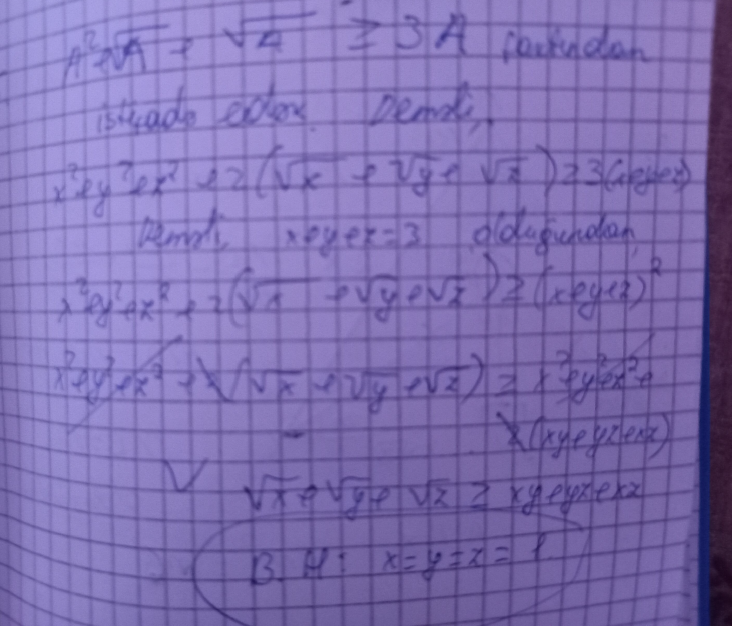 A²+√A + √A ≥ 3A faktından
istifadə edək. Deməli,
x²+y²+z² + 2(√x + √y + √z) ≥ 3(x+y+z)
Deməli, x+y+z=3 olduğundan,
x²+y²+z² + 2(√x + √y + √z) ≥ (x+y+z)²
x²+y²+z² + 2(√x + √y + √z) ≥ x²+y²+z²+
2(xy+yz+xz)
√x + √y + √z ≥ xy+yz+xz
B.H: x=y=z=1